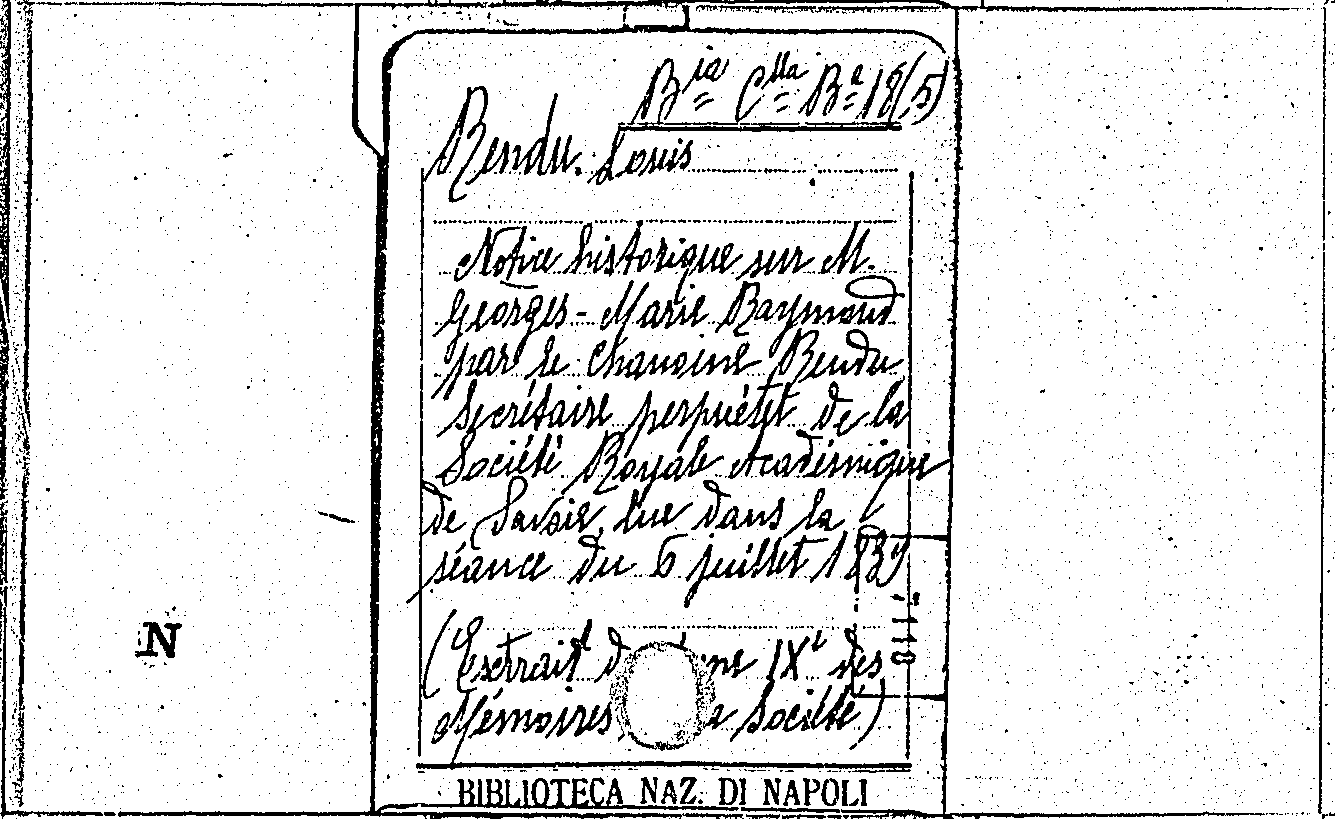 Bia Clla Ba 18(5)
Rendu. Louis
Notice historique sur M.
Georges-Marie Raymond
par le chanoine Rendu
Secrétaire perpuétet de la
Société Royale Académique
de Savoie, lue dans la
séance du 6 juillet 1839
(Esctrait IXe des
Mémoires Société)
N
BIBLIOTECA NAZ. DI NAPOLI